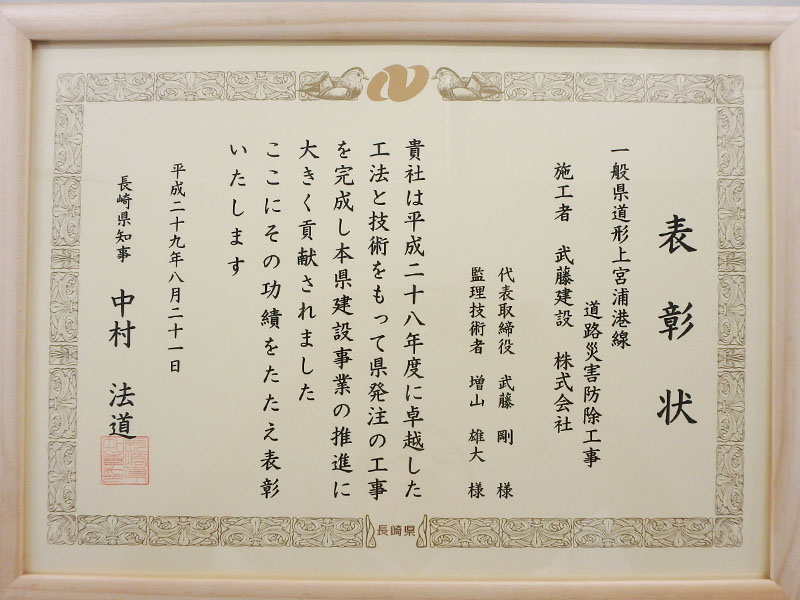 表彰状
一般県道形上宮浦港線
道路災害防除工事
施工者 武藤建設 株式会社
代表取締役 武藤 剛 様
監理技術者 増山 雄大 様
貴社は平成二十八年度に卓越した
工法と技術をもって県発注の工事
を完成し本県建設事業の推進に
大きく貢献されました
ここにその功績をたたえ表彰
いたします
平成二十九年八月二十一日
長崎県知事 中村 法道
長崎県